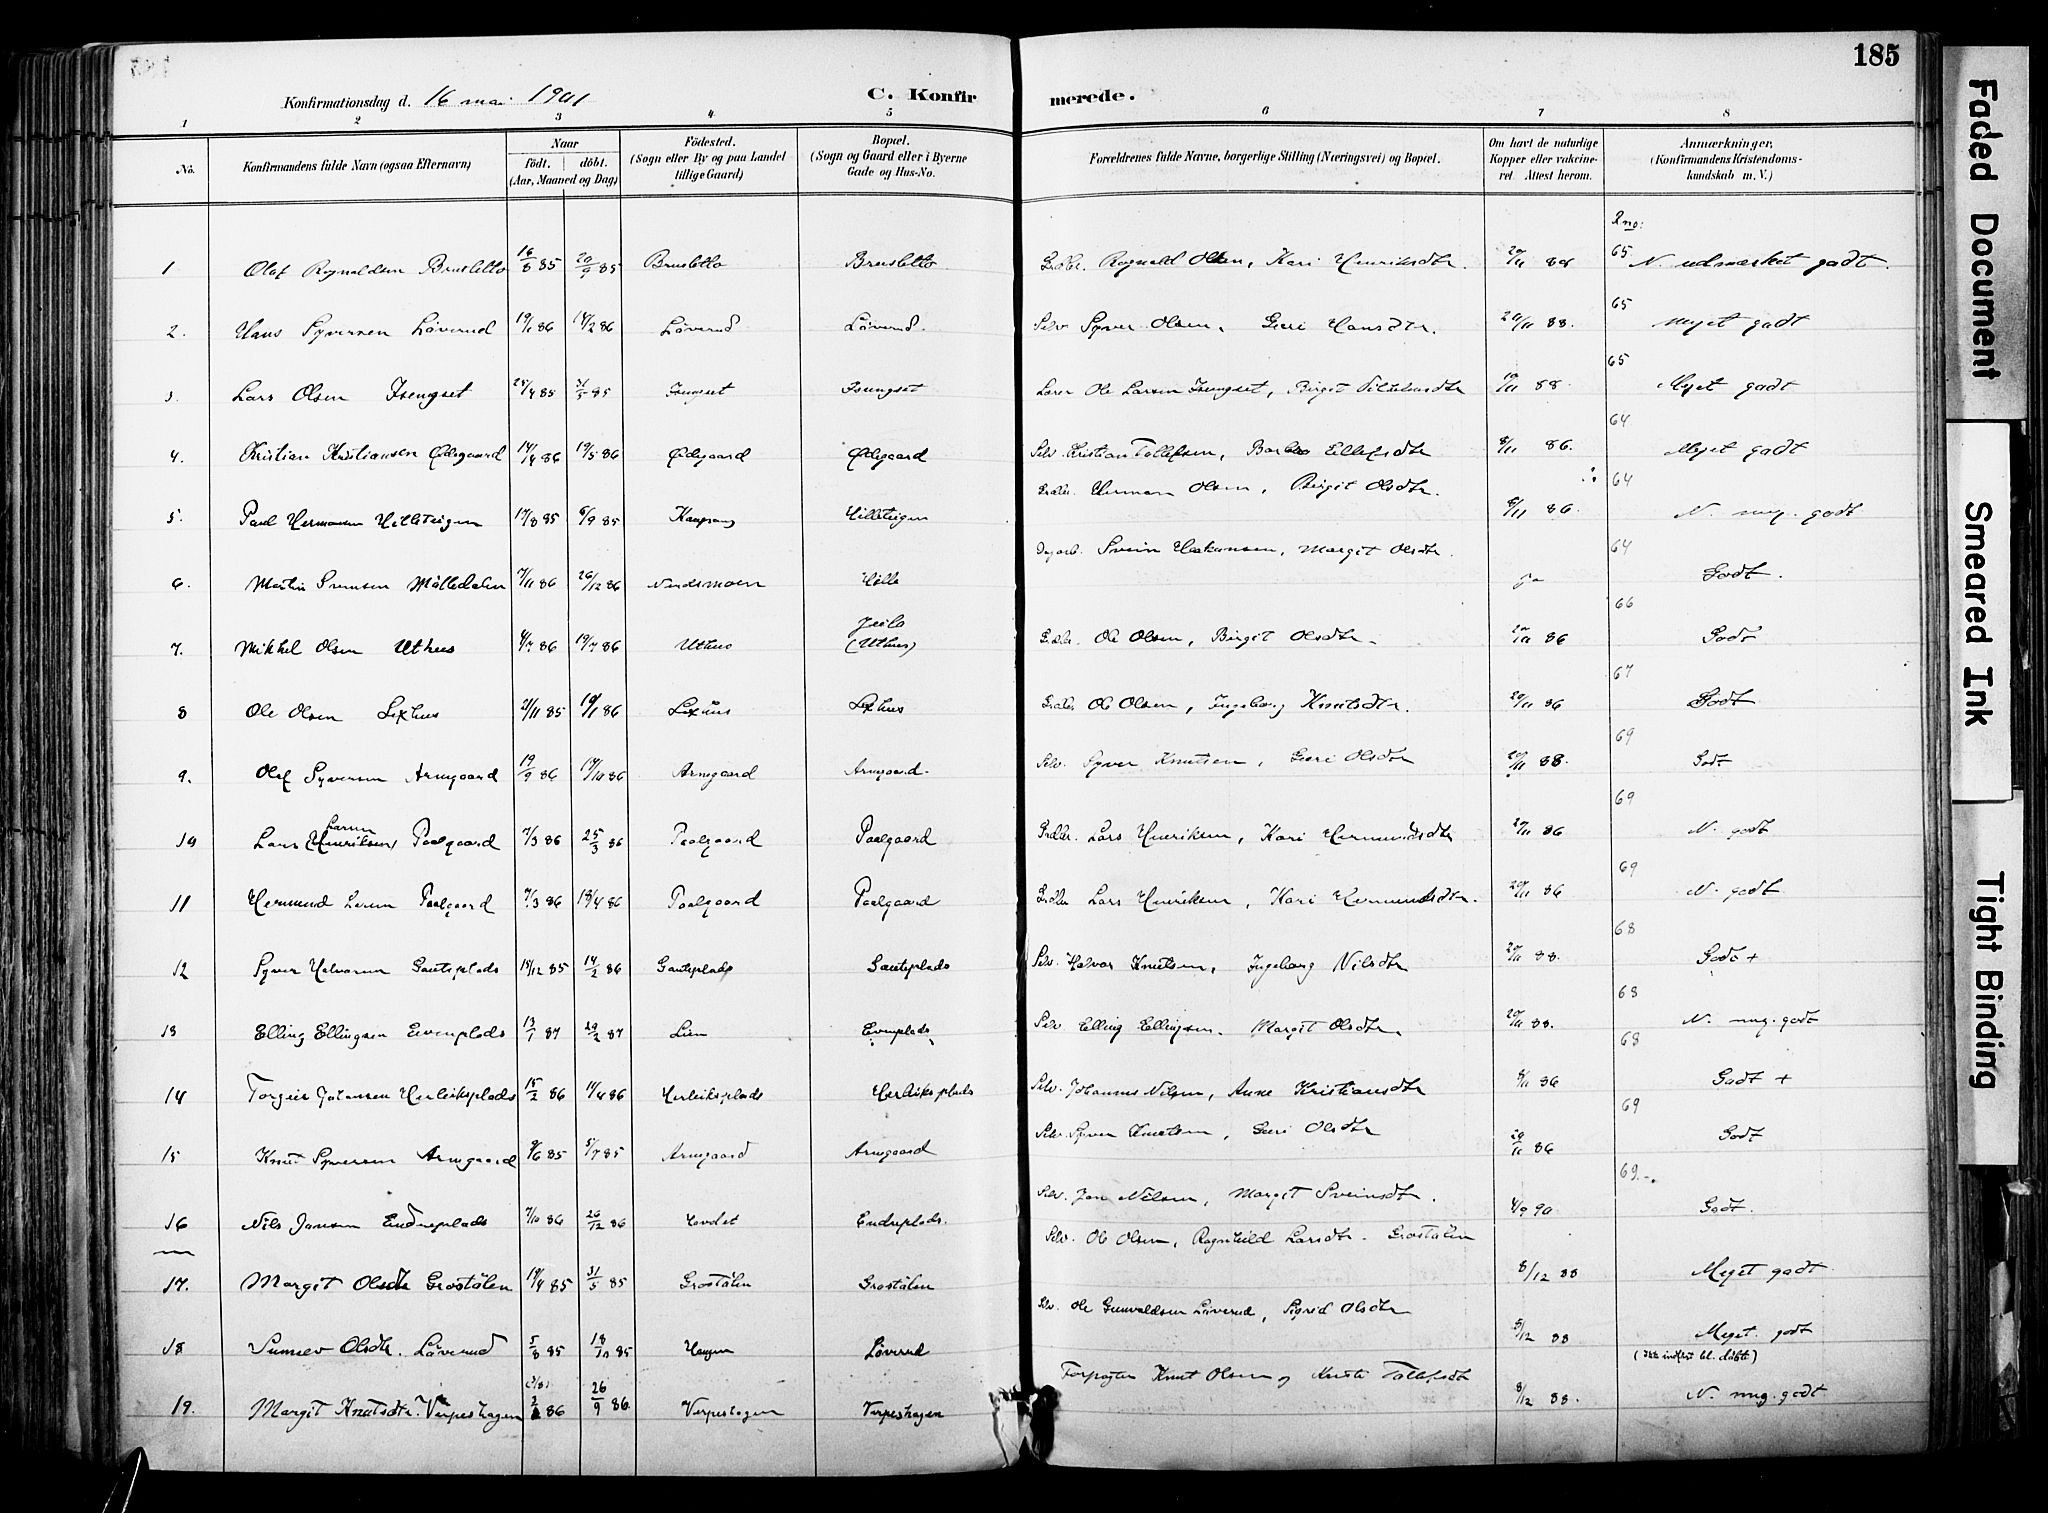 185
Konfirmationsdag d. 16 mai 1901 C. Konfirmerede.
1 2 3 4 5 6 7 8
No. Konfirmandens fulde Navn (ogsaa Efternavn) Naar født. døbt. (Aar, Maaned og Dag) Födested. (Sogn eller By og paa Landet tillige Gaard) Bopæl. (Sogn og Gaard eller i Byerne Gade og Hus-No. Forældrenes fulde Navne, borgerlige Stilling (Næringsvei) og Bopæl. Om havt de naturlige Kopper eller vakcineret. Attest herom. Anmærkninger, (Konfirmandens Kristendomskundskab m. V.)
1 Olaf Rognaldsen Brusletto 16/8 85 20/9 85 Brusletto Brusletto Grdbr. Rognald Olsen, Kari Henriksdtr. 20/11 88 65 N. udmærket godt.
2. Hans Syversen Löverud 19/1 86 14/2 86 Löverud Löverud. Selv. Syver Olsen, Guri Hansdtr. 20/11 88. 65 Meget godt
3. Lars Olsen Isengset 25/4 85 31/5 85 Isungset Isungset Lærer Ole Larsen Isengset, Birget 19/11 88. 65 Meget godt
4. Kristian Kristiansen Ødegaard 14/4 86 19/5 86 Ødegaard Ødegaard Selv. Kristian Tollefsen, Barbro Ellefsdtr 8/11 86. 64 Meget godt
5. Paul Hermansen Villeteigen 17/8 85 6/9 85 Kaupang Villeteigen Grdbr. Herman Olsen, Birgit Olsdtr. 8/11 86. 64 N. mg. godt
6. Martin Sveinsen Mølledalen 7/11 86 26/12 86 Nordsmoen Hølle Svein Haakonsen, Margit Olsdtr. ja 64 Godt.
7. Mikkel Olsen Uthus 4/7 86 19/7 86 Uthus Geilo (Uthus) Grdbr. Ole Olsen, Birgit Olsdtr. 20/11 86 66 Godt
8 Ole Olsen Lexhus 21/11 85 10/1 86 Lexhus Lexhus Grdbr. Ole Olsen, Ingebörg Knutsdtr. 20/11 86 67 Godt
9. Olaf Syversen Arnegaard 19/9 86 17/10 86 Arnegaard Arnegaard. Selv. Syver Knutsen, Guri Olsdtr 20/11 88. 69 Godt
10 Lars Larsen (Henriksen) Paalgaard 7/3 86 25/3 86 Paalgaard Paalgaard Grdbr. Lars Henriksen, Kari Hermundsdtr 20/11 86 69 N. godt
11 Hermund Larsen Paalgaard 7/3 86 18/4 86 Paalgaard Paalgaard Grdbr Lars Henriksen, Kari Hermundsdtr. 20/11 86 69 N. godt
12 Syver Halvorsen Gauteplads 15/12 85 14/2 86 Gauteplads Gauteplads Selv. Halvor Knutsen, Ingeborg Nilsdtr 20/11 88. 68 Godt +
13 Elling Ellingsen Evenplads 13/1 87 20/2 87 Lien Evenplads Selv. Elling Ellingsen. Margit Olsdtr. 20/11 88. 68 N. mg. godt
14 Torgeir Johansen Herleiksplads 15/2 86 11/4 86 Herleiksplads Herleiksplads Selv. Johannes Nilsen, Anne Kristiansdtr 8/11 86 68 Godt +
15 Knut Syversen Arnegaard 9/6 85 5/7 85 Arnegaard Arnegaard Selv. Syver Knutsen, Guri Olsdtr 20/11 86 69 Godt
16 Nils Jansen Endreplads 7/10 86 26/12 86 Hovdet Endreplads. Selv. Jan Nilsen, Margit Sveinsdtr. 4/9 90 69 Godt.
17. Margit Olsdtr Grostölen 19/4 85 31/5 85 Grostölen Grostölen Selv. Ole Olsen, Ragnhild Larsdtr. Grostölen 8/12 88 Meget godt
18 Sunnev Olsdtr. Löverud 5/8 85 18/10 85 Haugen Löverud Selv. Ole Gunvaldsen Löverud, Sigrid Olsdtr 8/12 88 Meget godt (ikke indført bl. døbte)
19. Margit Knutsdtr. Verpeshagen 2 86 26/9 86 Verpeshagen Verpeshagen Forpagter Knut Olsen og Kristi Tollefsdtr 8/12 88. N. mg. godt
Faded Document
Smeared Ink
Tight Binding